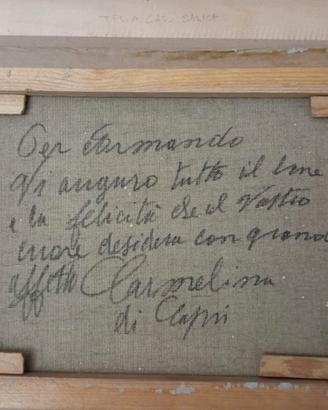 Per Armando
Vi auguro tutto il bene
e la felicità che il Vostro
cuore desidera con grande
affetto Carmelina
di Capri